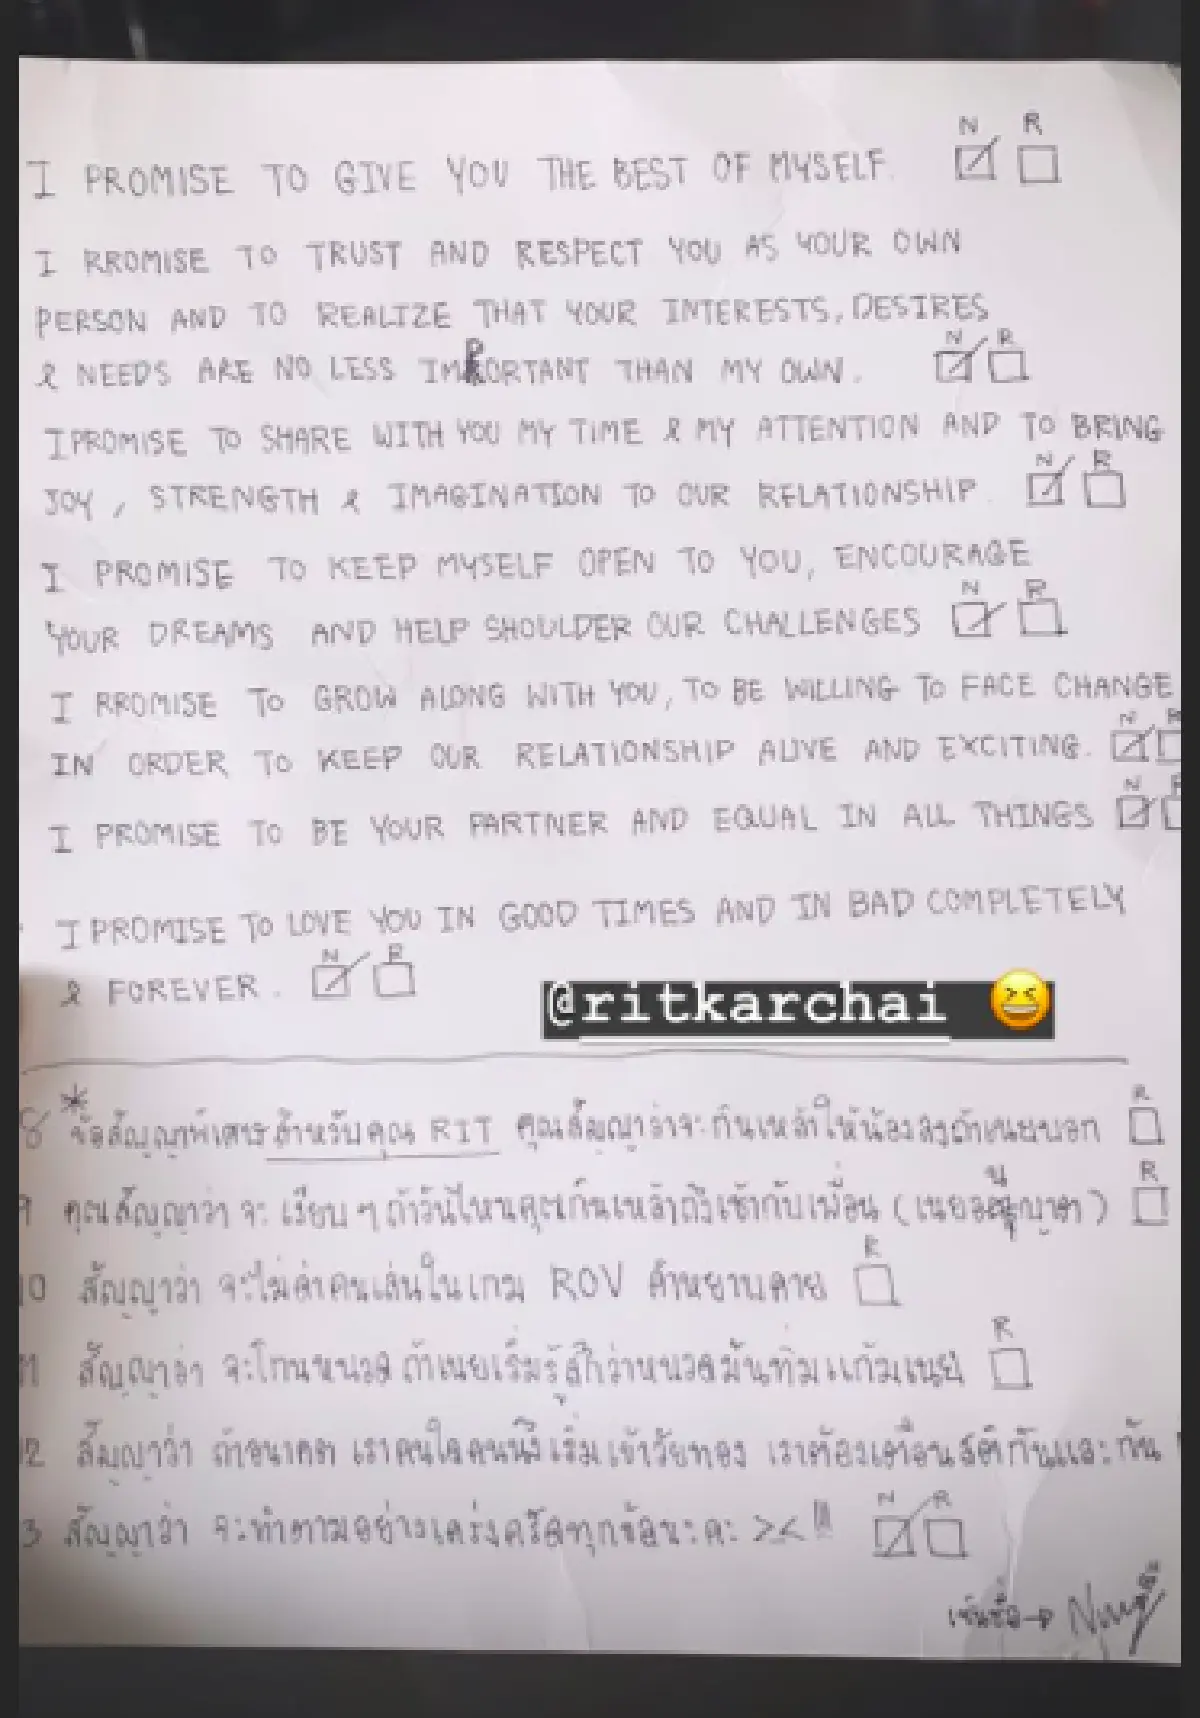 N R
I PROMISE TO GIVE YOU THE BEST OF MYSELF.
I RROMISE TO TRUST AND RESPECT YOU AS YOUR OWN
PERSON AND TO REALIZE THAT YOUR INTERESTS, DESIRES
N R
& NEEDS ARE NO LESS IMPORTANT THAN MY OWN.
I PROMISE TO SHARE WITH YOU MY TIME & MY ATTENTION AND TO BRING
N R
JOY, STRENGTH & IMAGINATION TO OUR RELATIONSHIP.
I PROMISE TO KEEP MYSELF OPEN TO YOU, ENCOURAGE
N R
YOUR DREAMS AND HELP SHOULDER OUR CHALLENGES
I RROMISE TO GROW ALONG WITH YOU, TO BE WILLING TO FACE CHANGE
N R
IN ORDER TO KEEP OUR RELATIONSHIP ALIVE AND EXCITING.
N R
I PROMISE TO BE YOUR PARTNER AND EQUAL IN ALL THINGS
I PROMISE TO LOVE YOU IN GOOD TIMES AND IN BAD COMPLETELY
N R
& FOREVER.
@ritkarchai 😆
R
8 *ข้อสัญญาพิเศษสำหรับคุณ RIT คุณสัญญาว่าจะกินเหล้าให้น้องลงถ้าเนยบอก
R
9 คุณสัญญาว่า จะ เรียบๆ ถ้าวันไหนคุณกินเหล้าถึงเช้ากับเพื่อน (เนยอนุญาต)
R
10 สัญญาว่า จะไม่ด่าคนเล่นในเกม ROV คำหยาบคาย
R
11 สัญญาว่า จะโกนหนวด ถ้าเนยเริ่มรู้สึกว่าหนวดมันทิ่มแก้มเนย
12 สัญญาว่า ถ้าอนาคต เราคนใดคนนึงเริ่มเข้าวัยทอง เราต้องเตือนสติกันและกัน
N R
3 สัญญาว่า จะทำตามอย่างเคร่งครัดทุกข้อนะคะ ><!!!
เซ็นชื่อ→